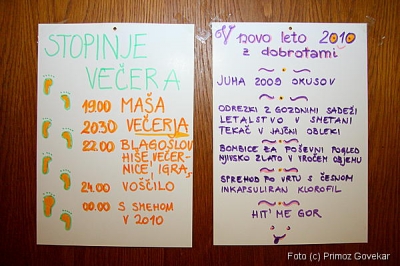 STOPINJE
VEČERA
19.00 MAŠA
2030 VEČERJA
22.00 BLAGOSLOV
HIŠE, VEČER-
NICE, IGRA,
24.00 VOŠČILO
00.00 S SMEHOM
V 2010
V novo leto 2010
z dobrotami
JUHA 2009 OKUSOV
ODREZKI Z GOZDNIMI SADEŽI
LETALSTVO V SMETANI
TEKAČ V HAJČNI OBLEKI
BOMBICE ZA POŠEVNI POGLED
NJIVSKO ZLATO V VROČEM OBJEMU
SPREHOD PO VRTU S ČESNOM
INKAPSULIRAN KLOROFIL
HIT' ME GOR
Foto (c) Primoz Govekar